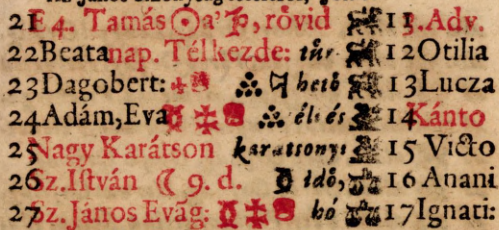 21 E 4. Tamás ☉ a' ♑, rövid 11 3. Adv.
22 Beata nap. Tél kezde: tür 12 Otilia
23 Dagobert: hetö 13 Lucza
24 Adám, Eva élés 14 Kánto
25 Nagy Karátson karatsonyi 15 Victo
26 Sz. Iſtván ☾ 9. d. idö, 16 Anani
27 Sz. János Evãg: hó 17 Ignati: